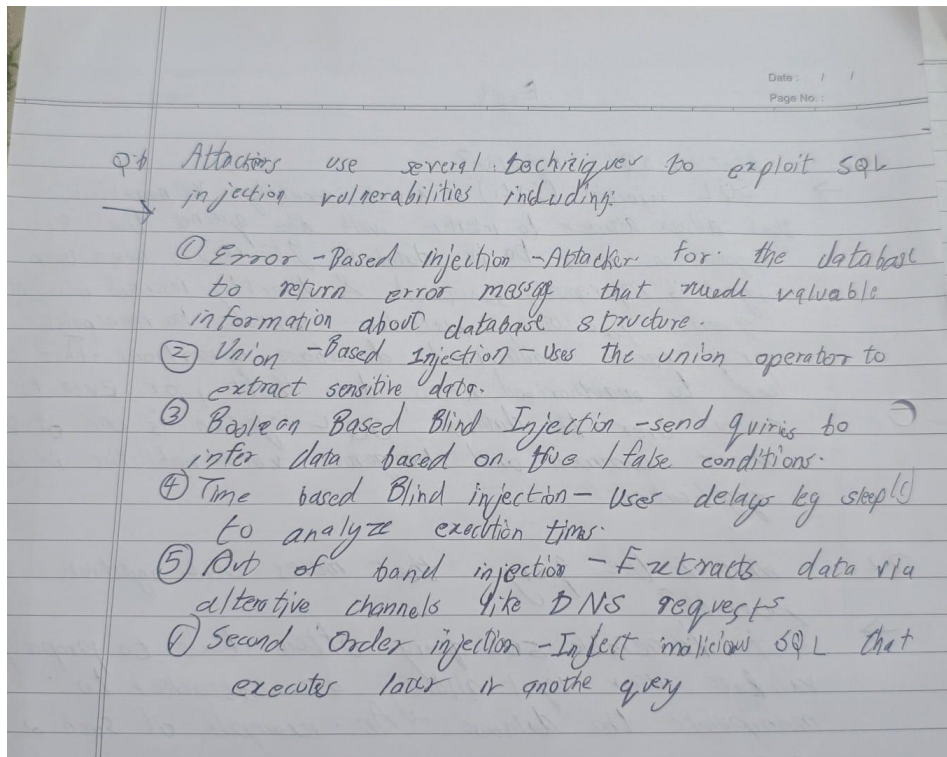 Date : / /
Page No. :
Attackers use several techniques to exploit SQL
injection vulnerabilities including:
① Error - Based injection - Attacker for the database
to return error messge that valuable
information about database structure.
② Union - Based Injection - Uses the union operator to
extract sensitive data.
③ Boolean Based Blind Injection - send quiries to
infer data based on true / false conditions.
④ Time based Blind injection - Uses delays (eg sleep()
to analyze execution times.
⑤ Out of band injection - Extracts data via
alterative channels like DNS requests
Second Order injection - Inject malicious SQL that
executes later in anothe query